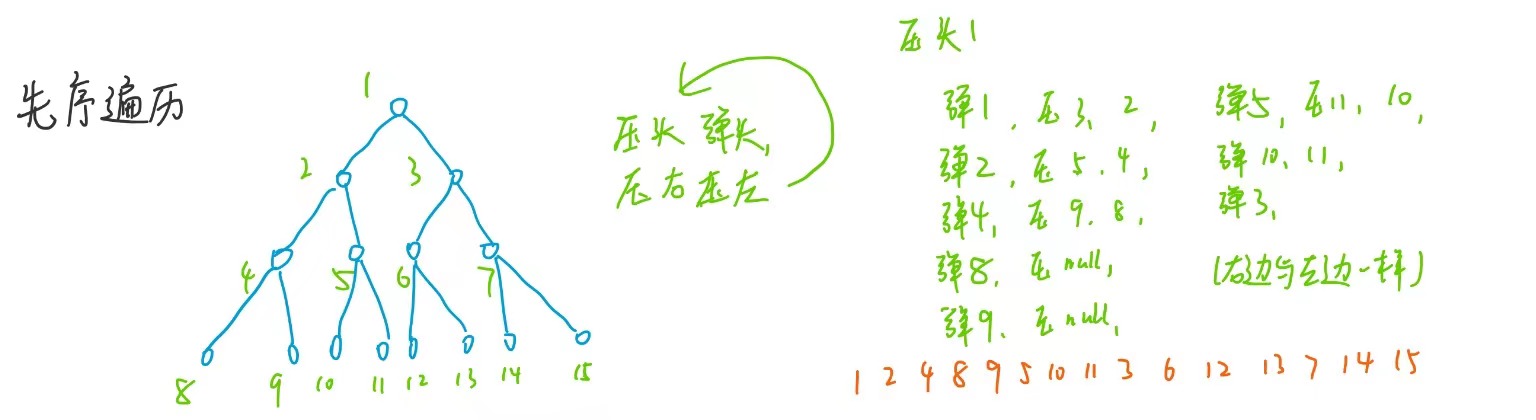 先序遍历
1
2 3
4 5 6 7
8 9 10 11 12 13 14 15
压头 弹头,
压右压左
压头1
弹1, 压3, 2,
弹2, 压5, 4,
弹4, 压9, 8,
弹8, 压null,
弹9, 压null,
弹5, 压11, 10,
弹10, 11,
弹3,
(右边与左边一样)
1 2 4 8 9 5 10 11 3 6 12 13 7 14 15